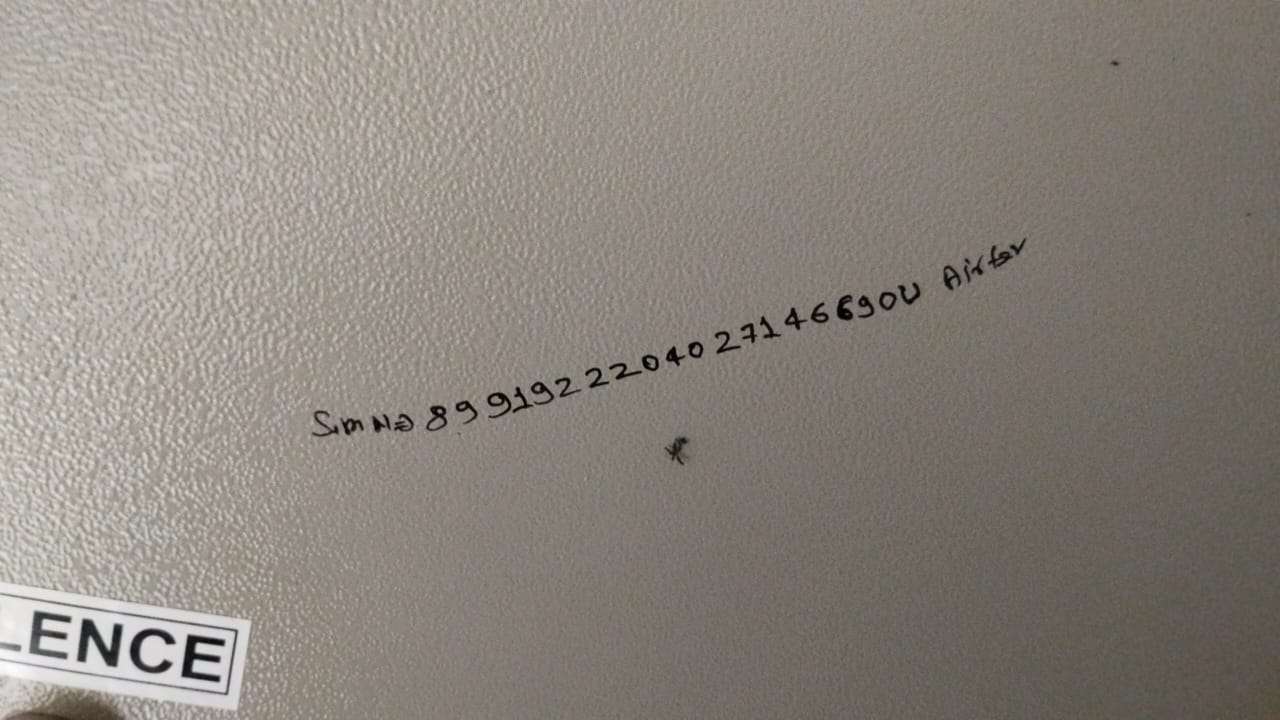 Sim No 8991922204027146690U Airter
LENCE